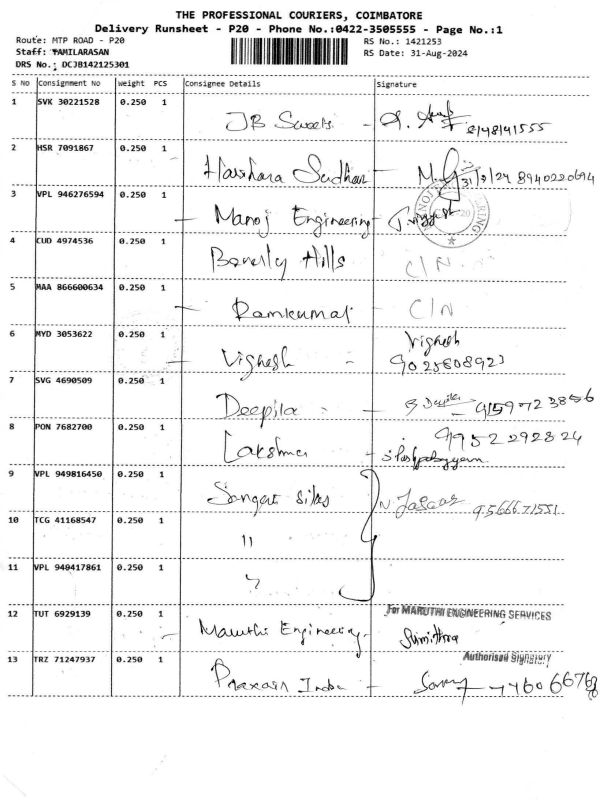 THE PROFESSIONAL COURIERS, COIMBATORE
Delivery Runsheet - P20 - Phone No.:0422-3505555 - Page No.:1
Route: MTP ROAD - P20
RS No.: 1421253
Staff: TAMILARASAN
RS Date: 31-Aug-2024
DRS No.: DCJB142125301
S No Consignment No Weight PCS Consignee Details Signature
1 SVK 30221528 0.250 1 JB Sweets
2 HSR 7091867 0.250 1 Harihara Sudhan - 31/8/24 8940220694
3 VPL 946276594 0.250 1 - Manoj Engineering -
4 CUD 4974536 0.250 1 Beverly Hills C/N
5 MAA 866600634 0.250 1 - Ramkumar - C/N
6 MYD 3053622 0.250 1 - Vignesh - Vignesh
9025808923
7 SVG 4690509 0.250 1 Deepika - 9159723856
8 PON 7682700 0.250 1 Lakshmi - 9952292824
9 VPL 949816450 0.250 1 Sangeet silks 9566671551
10 TCG 41168547 0.250 1 "
11 VPL 940417861 0.250 1 "
12 TUT 6929139 0.250 1 - Maruthi Engineering. For MARUTHI ENGINEERING SERVICES
Sumithra
Authorised Signatory
13 TRZ 71247937 0.250 1 India -